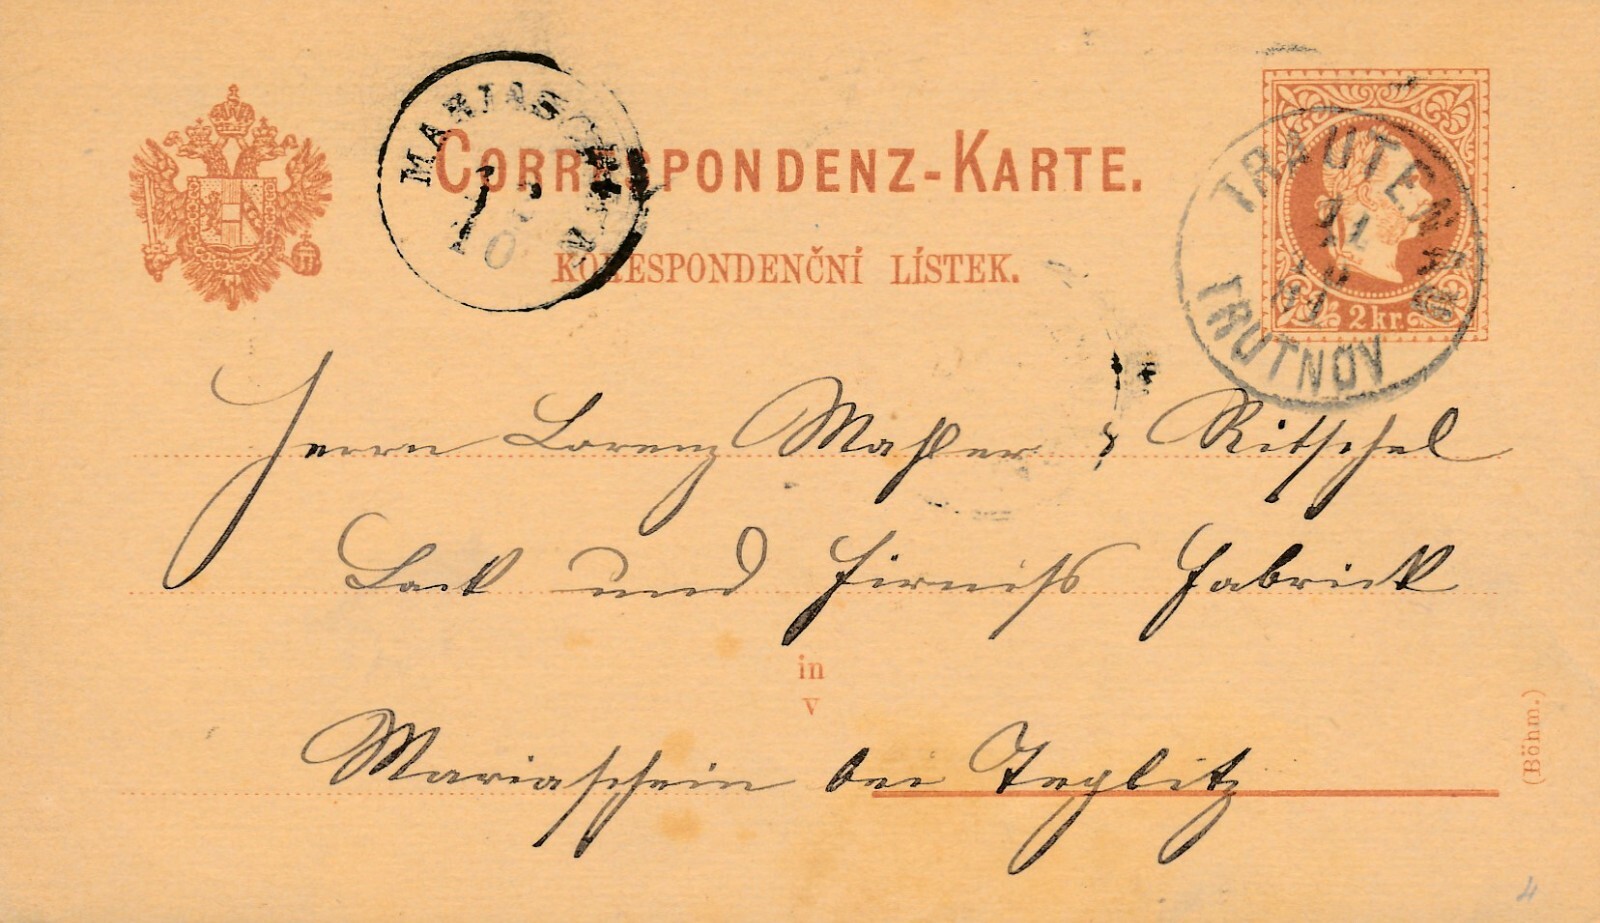 MARIASCHEIN
CORRESPONDENZ-KARTE.
KORESPONDENČNÍ LÍSTEK.
TRAUTENAU
TRUTNOV
2 kr.
Herrn Lorenz Mahler & Ritschel
Lack und Firniß Fabrick
in
v
Mariaschein bei Teplitz
(Böhm.)
4